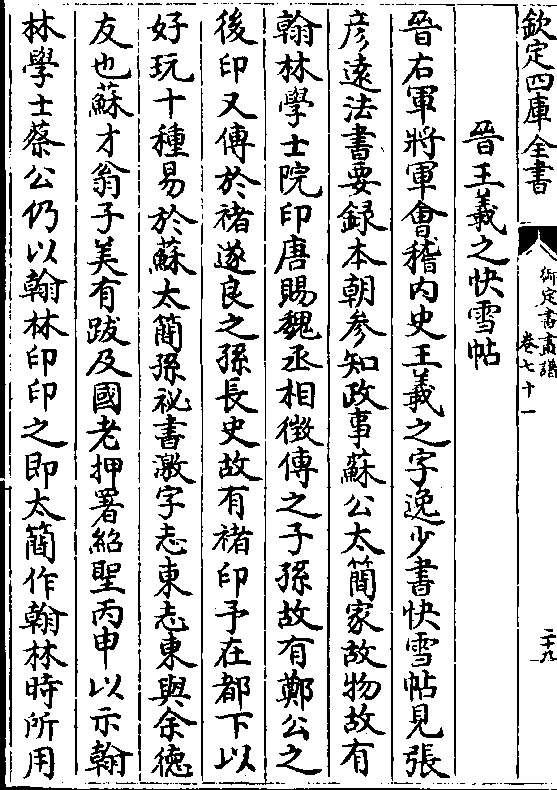 欽定四庫全書
御定書畫譜
卷七十一
二十九
晉王羲之快雪帖
晉右軍將軍會稽内史王羲之字逸少書快雪帖見張
彦遠法書要録本朝參知政事蘇公太簡家故物故有
翰林學士院印唐賜魏丞相徵傳之子孫故有鄭公之
後印又傳於褚遂良之孫長史故有褚印予在都下以
好玩十種易於蘇太簡孫祕書激字志東志東與余德
友也蘇才翁子美有跋及國老押署紹聖丙申以示翰
林學士蔡公仍以翰林印印之即太簡作翰林時所用